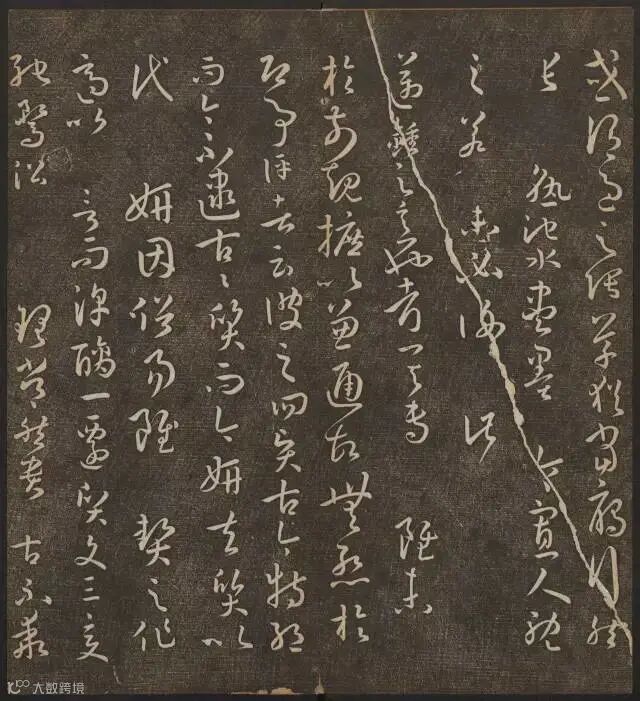 或謂過之張草猶當雁行然
張 熟池水盡墨 令寡人耽
之若 未必謝 此
邁鍾之意也考其專 雖未
於前規摭以兼通故無慙於
即事評者云彼之四賢古今特絕
而今不逮古々質而今妍夫質以
代 妍因俗易雖 契之作
適以 言而淳醨一遷質文三變
馳騖沿 理常然貴 古不乖
大数跨境